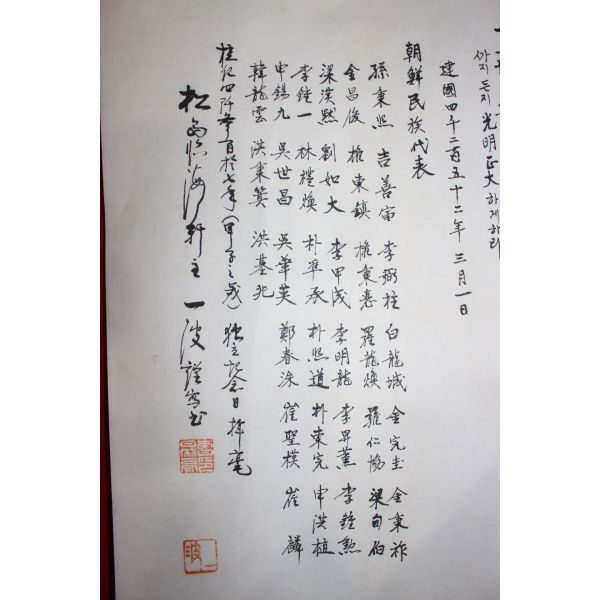 까지든지 光明正大 하게하라
建國四千二百五十二年 三月一日
朝鮮民族代表
孫秉熙 吉善宙 李弼柱 白龍城 金完圭 金秉祚
金昌俊 權東鎮 權秉悳 羅龍煥 羅仁協 梁甸伯
梁漢默 劉如大 李甲成 李明龍 李昇薰 李鍾勳
李鍾一 林禮煥 朴準承 朴熙道 朴東完 申洪植
申錫九 吳世昌 吳華英 鄭春洙 崔聖模 崔麟
韓龍雲 洪秉箕 洪基兆
檀紀四阡參百拾七年(甲子之歲) 獨立記念日 揮毫
松島臨海軒主 一波 謹寫書